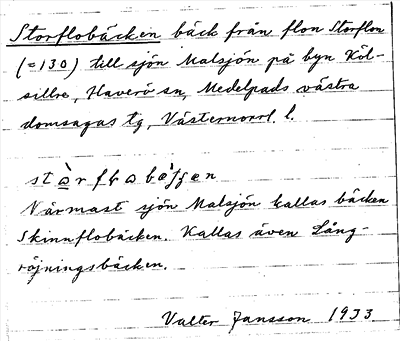 Storflobäcken bäck från flon Storflon
(=130) till sjön Malsjön på byn Köl-
sillre, Haverö sn, Medelpads västra
domsagas tg, Västernorrl. l.
Närmast sjön Malsjön kallas bäcken
Skinnflobäcken. Kallas även Lång-
röjningsbäcken.
Valter Jansson 1933